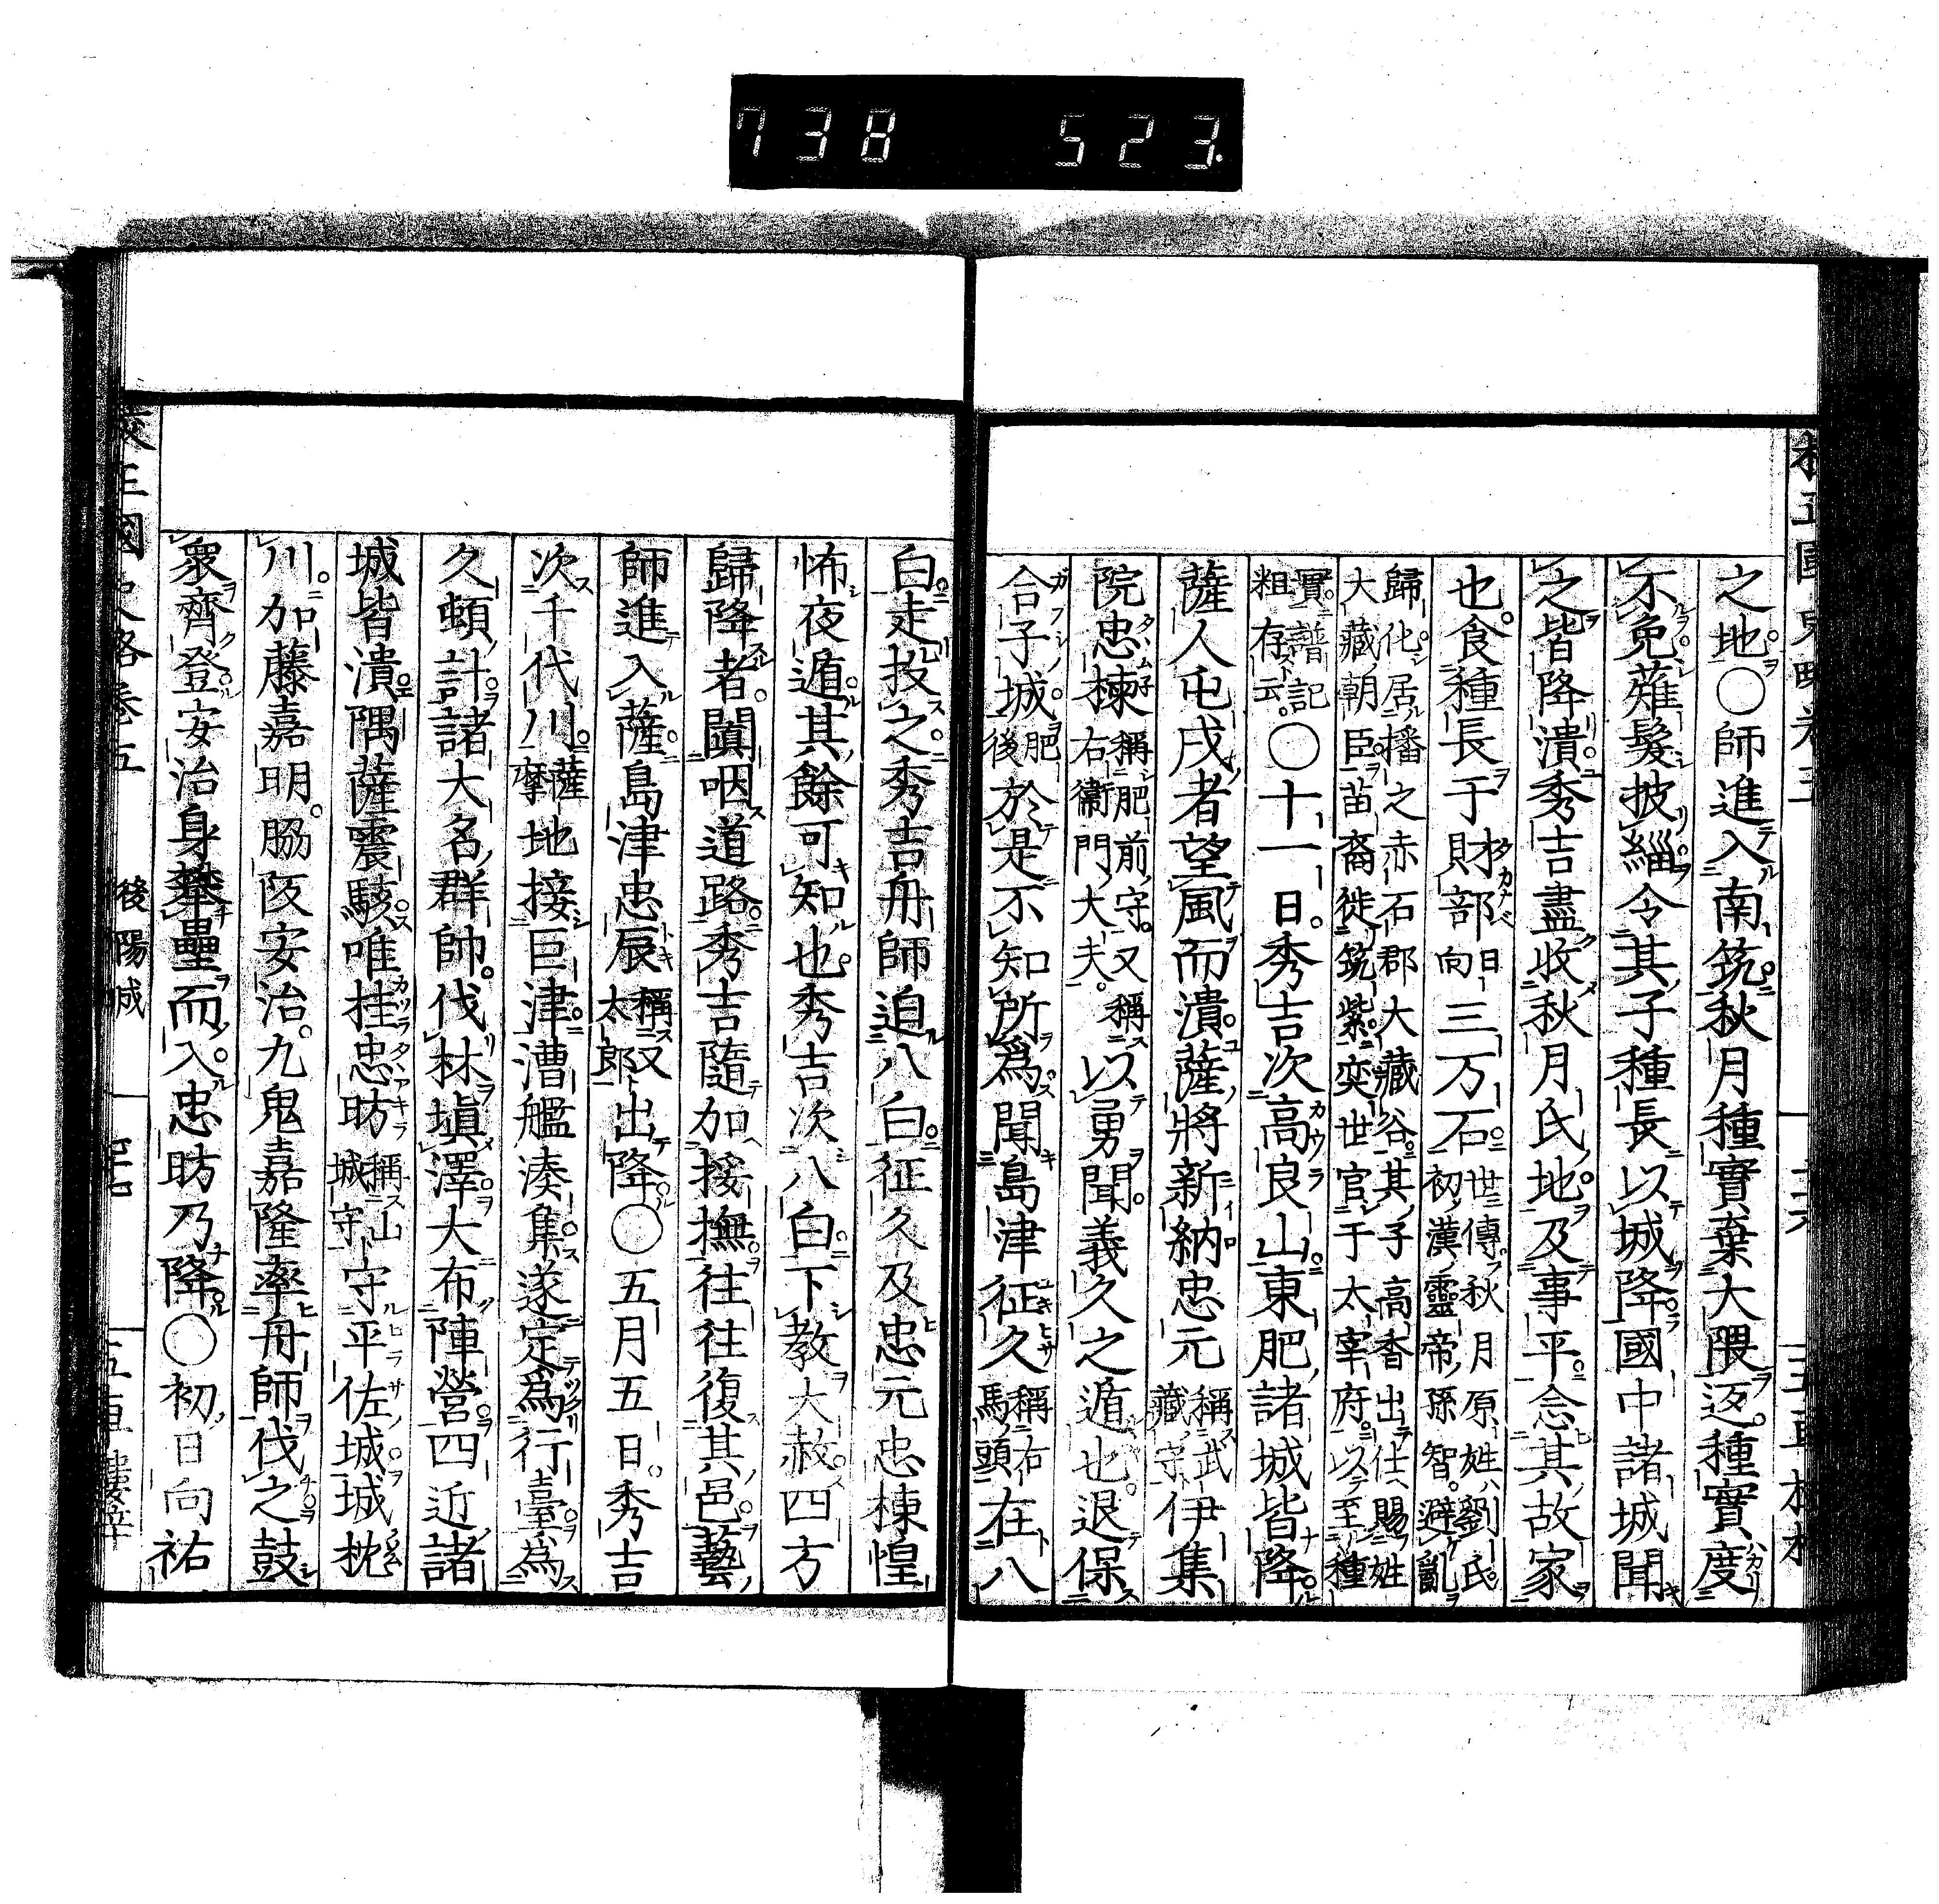 738 523.
之地○師進入南筑秋月種實棄大隈返種實度
不免薙髮披緇令其子種長以城降國中諸城聞
之皆降潰秀吉盡收秋月氏地及事平念其故家
也食種長于財部日向三万石世傳秋月原姓劉氏初漢靈帝孫智避亂
歸化居播之赤石郡大藏谷其子高香出仕賜姓大藏朝臣苗裔徙筑紫奕世官于太宰府以至種
實譜記粗存云○十一日秀吉次高良山東肥諸城皆降
薩人屯戌者望風而潰薩將新納忠元稱武藏守伊集
院忠棟稱肥前守又稱右衞門大夫以勇聞義久之遁也退保
合子城肥後於是不知所爲聞島津征久稱右馬頭在八
白走投之秀吉舟師迫八白征久及忠元忠棟惶
怖夜遁其餘可知也秀吉次八白下教大赦四方
歸降者闐咽道路秀吉隨加授撫往往復其邑藝
師進入薩島津忠辰稱又太郎出降○五月五日秀吉
次千代川薩摩地接巨津漕艦湊集遂定爲行臺為
久頓計諸大名群帥伐林塡澤大布陣營四近諸
城皆潰隅薩震駭唯桂忠昉稱山城守守平佐城城枕
川加藤嘉明脇阪安治九鬼嘉隆率舟師伐之鼓
衆齊登安治身攀壘而入忠昉乃降○初日向祐
後陽成